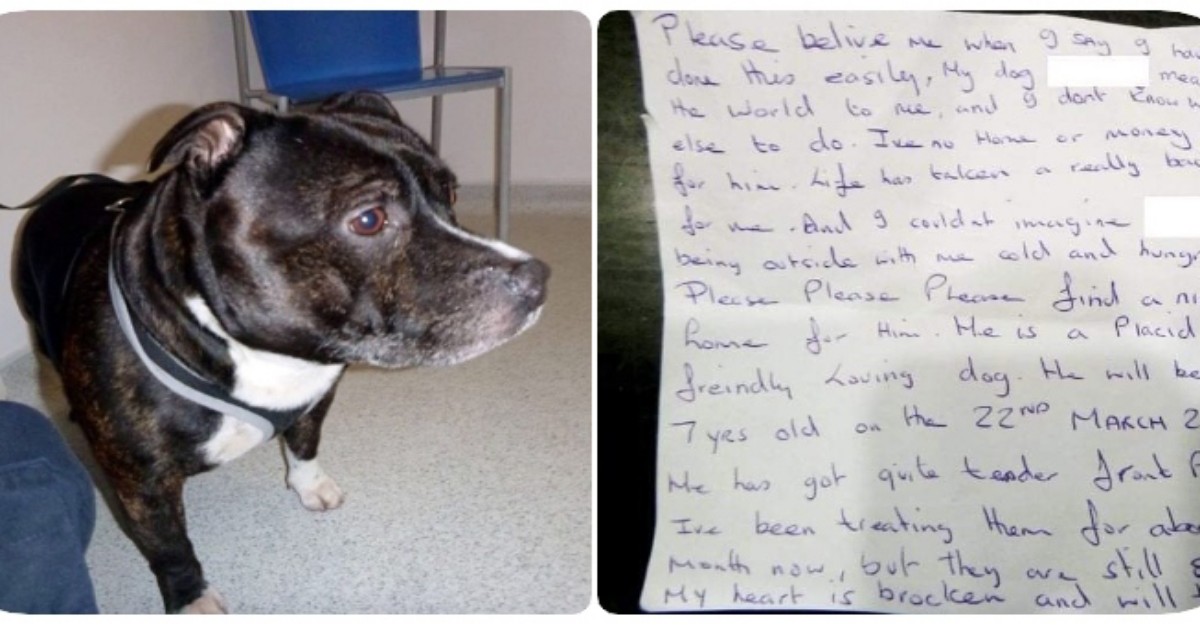 Please belive me when I say I hav
done this easily, My dog mea
the world to me, and I dont know
else to do. Ive no Home or money
for him. Life has taken a really ba
for me. And I couldnt imagine
being outside with me cold and hungr
Please Please Please find a ni
home for Him. He is a Placid
freindly Loving dog. He will be
7 yrs old on the 22ND MARCH 2
He has got quite tender front P
Ive been treating them for abo
month now, but they are still
My heart is brocken and will